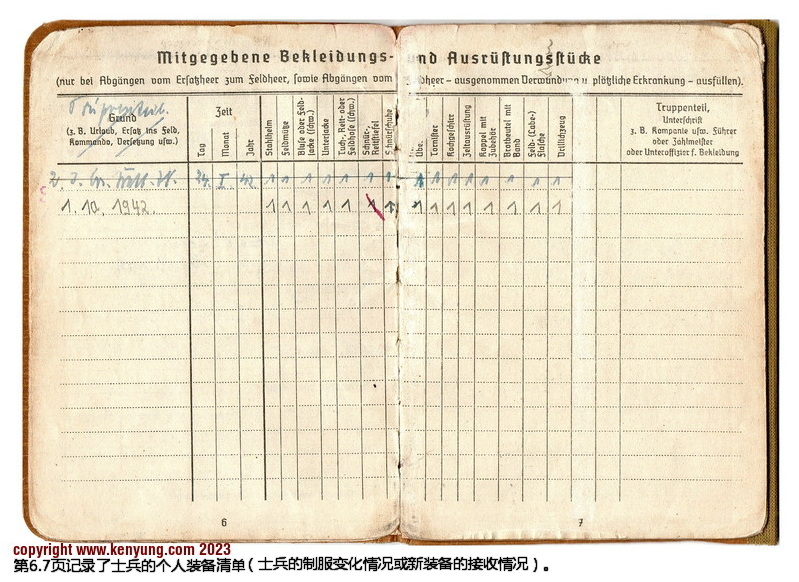 Mitgegebene Bekleidungs- und Ausrüstungsstücke
(nur bei Abgängen vom Ersatzheer zum Feldheer, sowie Abgängen vom Feldheer – ausgenommen Verwundung u plötzliche Erkrankung – ausfüllen).
Grund
(z. B. Urlaub, Ersatz ins Feld,
Kommando, Versetzung usw.)
Zeit
Tag
Monat
Jahr
Stahlhelm
Feldmütze
Bluse oder Feld-
jacke (schw.)
Unterjacke
Tuch-, Reit- oder
Feldhose (schw.)
Schnür-,
Reitstiefel
Schnürschuhe
Tornister
Kochgeschirr
Zeltausrüstung
Koppel mit
Zubehör
Brotbeutel mit
Band
Feld-(Labe-)
Flasche
Drillichzeug
Truppenteil,
Unterschrift
z. B. Kompanie usw. Führer
oder Zahlmeister
oder Unteroffizier f. Bekleidung
24. I 42 1 1 1 1 1 1 1 1 1 1 1 1 1 1
1. 10. 1942. 1 1 1 1 1 1 1 1 1 1 1 1 1 1 1
6
7
copyright www.kenyung.com 2023
第6.7页记录了士兵的个人装备清单(士兵的制服变化情况或新装备的接收情况)。